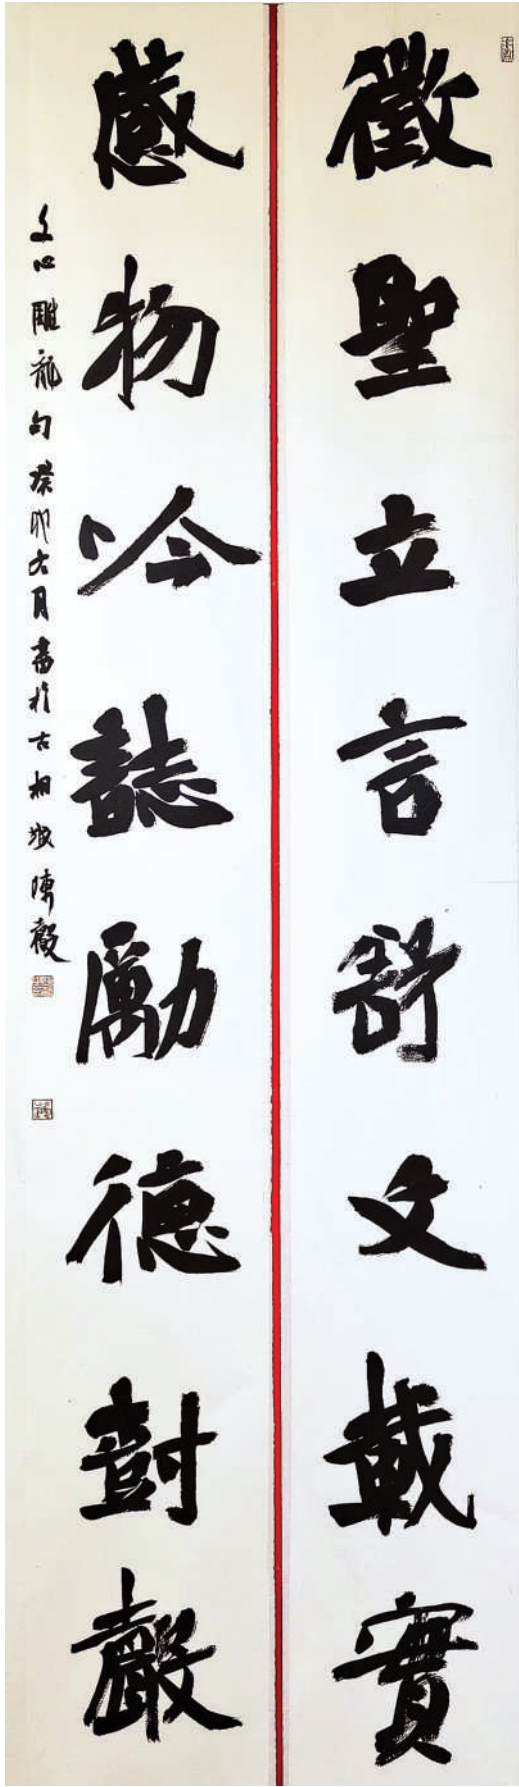 徵聖立言舒文載實
感物吟誌勵德尌聲
文心雕龍句癸卯六月書於古相城陳